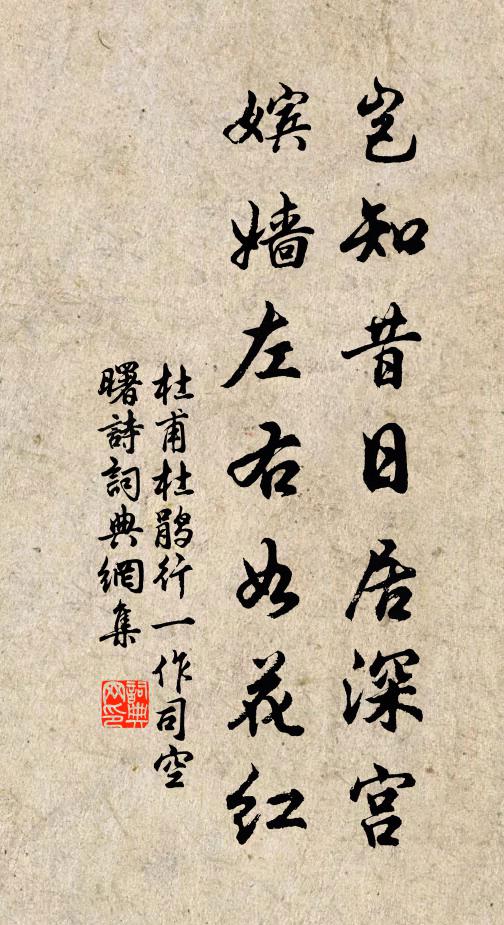 岂知昔日居深宫
嫔嫱左右如花红
杜甫杜鹃行一作司空
曙詩詞典網集
詞典
网印